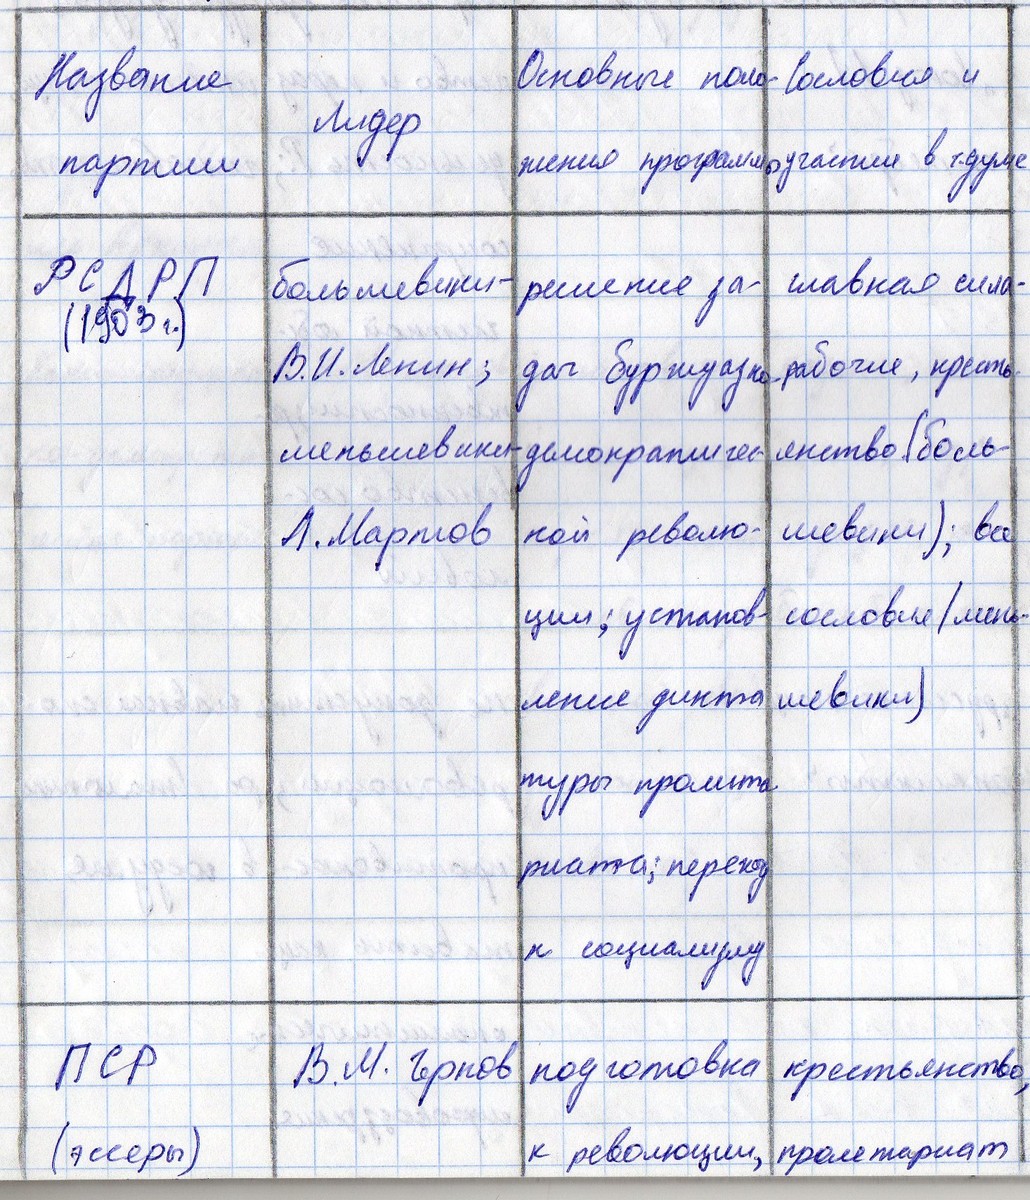 Название
партии
Лидер
Основные поло-
жения программы
Сословия и
участие в г.думе
РСДРП
(1903 г.)
большевики-
В.И.Ленин;
меньшевики-
Л.Мартов
решение за-
дач буржуазно-
демократичес-
кой револю-
ции; установ-
ление дикта
туры пролета
риата; переход
к социализму
главная сила-
рабочие, кресть-
янство (боль-
шевики); все
сословия (мень-
шевики)
ПСР
(эссеры)
В.М. Чернов
подготовка
к революции,
крестьянство,
пролетариат